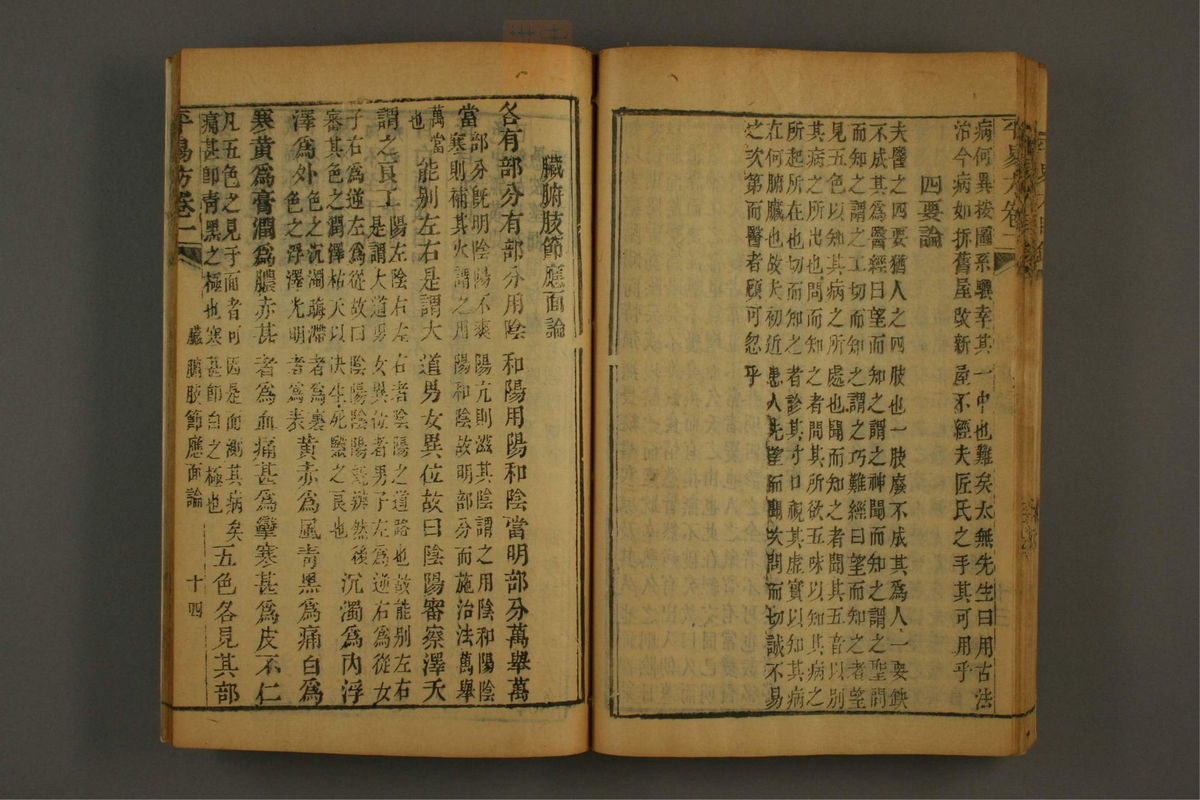 病何異按圖系驥幸其一中也難矣太無先生曰用古法
治今病如拆舊屋改新屋不經夫匠氏之手其可用乎
四要論
夫醫之四要猶人之四肢也一肢廢不成其爲人一要缺
不成其爲醫經曰望而知之謂之神聞而知之謂之聖問
而知之謂之工切而知之謂之巧難經曰望而知之者望
見五色以知其病之所處也聞而知之者聞其五音以別
其病之所出也問而知之者問其所欲五味以知其病之
所起所在也切而知之者診其寸口視其虛實以知其病
在何腑臟也故夫初近患人先望而聞次問而切誠不易
之次第而醫者顧可忽乎
臟腑肢節應面論
各有部分有部分用陰和陽用陽和陰當明部分萬舉萬
當部分既明陰陽不爽陽亢則滋其陰謂之用陰和陽陰
寒則補其火謂之用陽和陰故明部分而施治法萬舉
萬當也能別左右是謂大道男女異位故曰陰陽審察澤夭
謂之良工陽左陰右左右者陰陽之道路也故能別左右
是謂大道男女異位者男子左爲逆右爲從女
子右爲逆左爲從故曰陰陽陰陽既辨然後
審其色之潤澤枯夭以決生死醫之良也沉濁爲內浮
澤爲外色之沉濁晦滯者爲裏
色之浮澤光明者爲表黃赤爲風青黑爲痛白爲
寒黃爲膏潤爲膿赤甚者爲血痛甚爲攣寒甚爲皮不仁
凡五色之見于面者可因是而測其病矣
痛甚卽青黑之極也寒甚卽白之極也五色各見其部
平易方卷二 臟腑肢節應面論 十四